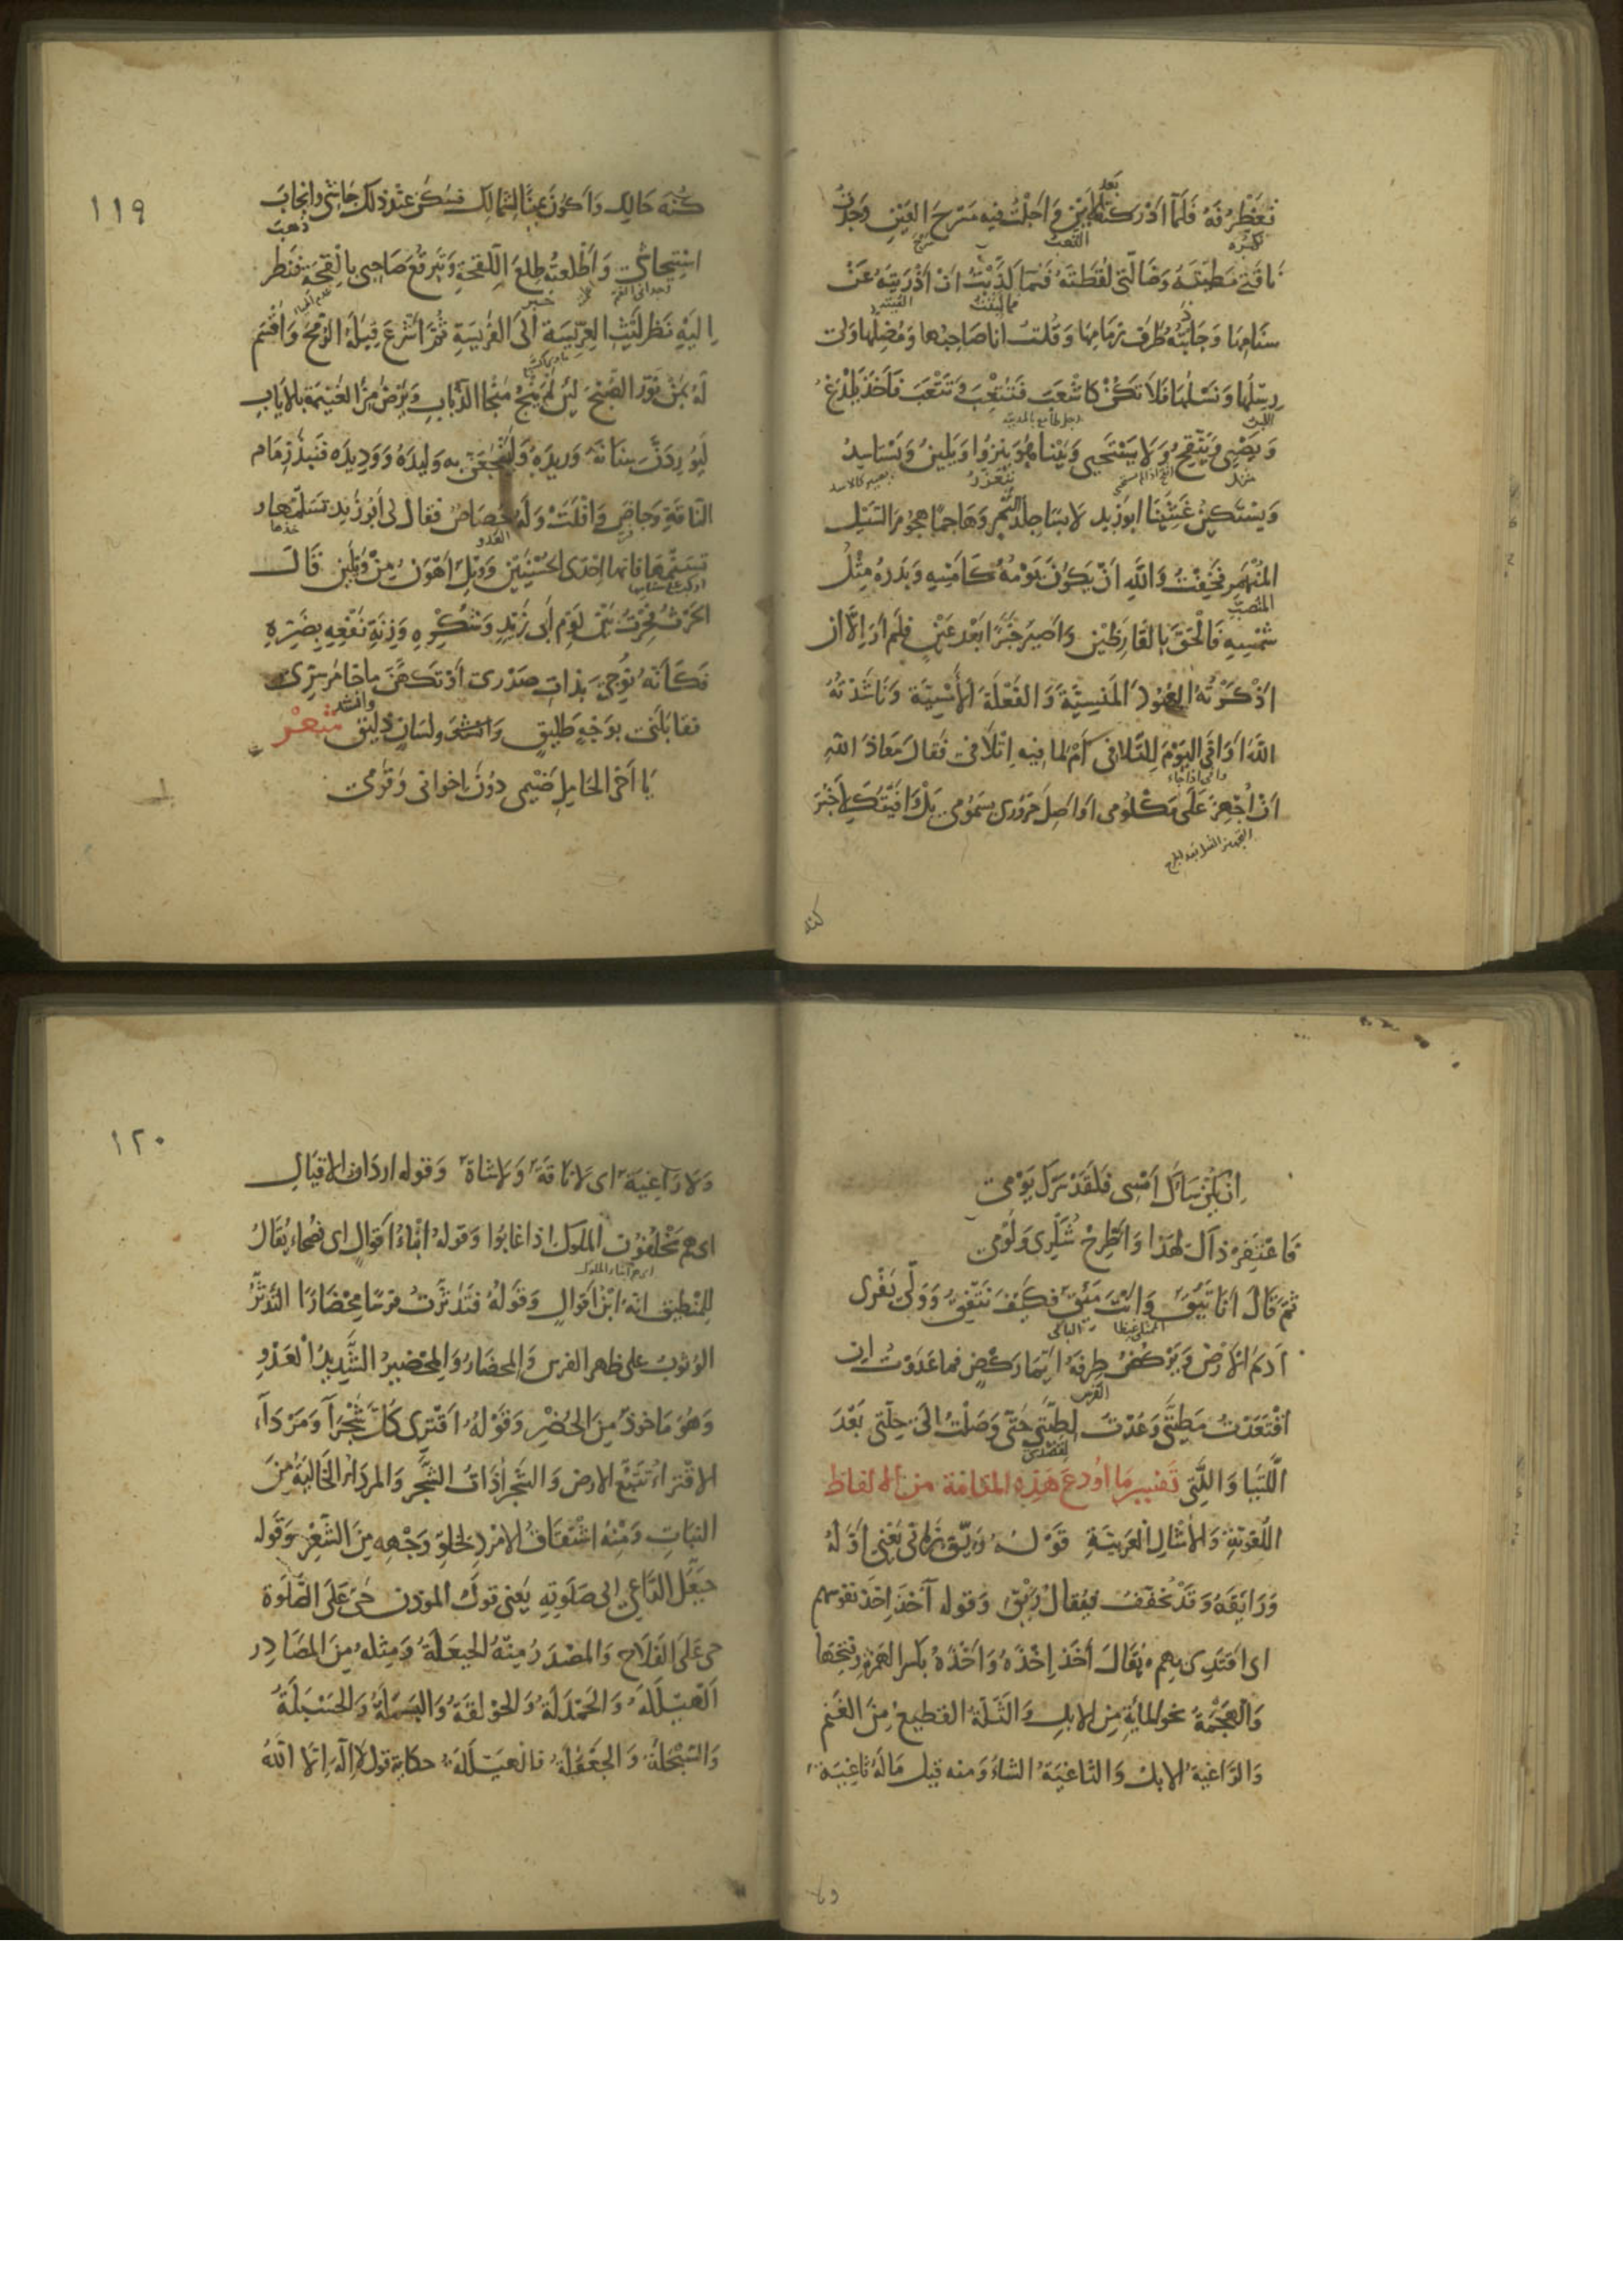 تغطرفه فلما ادركته بعد الاين واجلت فيه مسرح العين وجدت
ناقتي مطيته وضالتي لقطته فما كذبت ان اذريته عن
سنامها وجاذبته طرف زمامها وقلت انا صاحبها ومضلها ولي
رسلها ونسلها فلا تكن كاشعب فتتعب وتتعب فاخذ يلدغ
ويصئي ويتقح ولا يستحيي وبينا هو ينزوا ويلين ويستاسد
ويستكين غشينا ابو زيد لابسا جلد النمر وهاجما هجوم السيل
المنهمر فخفت والله ان يكون يومه كامسه وبدره مثل
شمسه فالحق بالقارظين واصير خبرا بعد عين فلم ار الا ان
اذكرته العهود المنسية والفعلة الامسية وناشدته
الله اوافى اليوم للتلافي ام لما فيه اتلافي فقال معاذ الله
ان اجهز على مكلومي او اصل حروري بسمومي بل وافيتك لاخبر
كنه
١١٩
كنه حالك واكون يمينا لشمالك فسكن عند ذلك جاشي وانجاب
استيحاشي واطلعته طلع اللقحة وتبرقع صاحبي بالقحة فنظر
اليه نظر ليث العريسة الى الفريسة ثم اشرع قبله الرمح واقسم
له بمن نور الصبح لئن لم ينج منجا الذباب ويرض من الغنيمة بالاياب
ليوردن سنانه وريده وليفجعن به وليده ووديده فنبذ زمام
الناقة وحاص وافلت وله حصاص فقال لي ابو زيد تسلمها و
تسنمها فانها احدى الحسنيين وويل اهون من ويلين قال
الحرث فحرت بين لوم ابي زيد وشكره وزنة نفعه بضره
فكانه نوجي بذات صدري او تكهن ماخامر سري
فقابلني بوجه طليق وانشد ولسان ذليق شعر
يا اخي الحامل ضيمي دون اخواني وقومي
ان يكن ساءك امسي فلقد سرك يومي
فاغتفر ذاك لهذا واطرح شكري ولومي
ثم قال انا تئق وانت مئق فكيف نتفق وولى يفري
اديم الارض ويركض طرفه ايما ركض فما عدوت ان
اقتعدت مطيتي وعدت لطيتي حتى وصلت الى حلتي بعد
اللتيا والتي تفسير ما اودع هذه المقامة من الالفاظ
اللغوية والامثال العربية قوله ريق زماني يعني اوله
ورايقه وقد يخفف فيقال ريق وقوله آخذ اخذ نفوسهم
اى اقتدي بهم يقال اخذ اخذه واخذه بكسر الهمزة وفتحها
والهجمة نحو الماية من الابل والثلة القطيع من الغنم
والراغية الابل والثاغية الشاء ومنه قيل ماله ثاغية
ولا
١٢٠
ولا راغية اى لا ناقة ولا شاة وقوله ارداف الاقيال
اى هم يخلفون الملوك اذا غابوا وقوله ابناء اقوال اى فصحاء يقال
للمنطيق انه ابن اقوال وقوله فتدثرت فرسا محضارا التدثر
الوثوب على ظهر الفرس والمحضار والمحضير الشديد العدو
وهو ماخوذ من الحضر وقوله اقترى كل شجراء ومرداء
الاقتراء تتبع الارض والشجراء ذات الشجر والمرداء الخالية من
النبات ومنه اشتقاق الامرد لخلو وجهه من الشعر وقوله
حيعل الداعي الى صلوته يعني قول الموذن حي على الصلوة
حي على الفلاح والمصدر منه الحيعلة ومثله من المصادر
الهيللة والحمدلة والحولقة والبسملة والحسبلة
والسبحلة والجعفلة فالهيللة حكاية قول لا اله الا الله